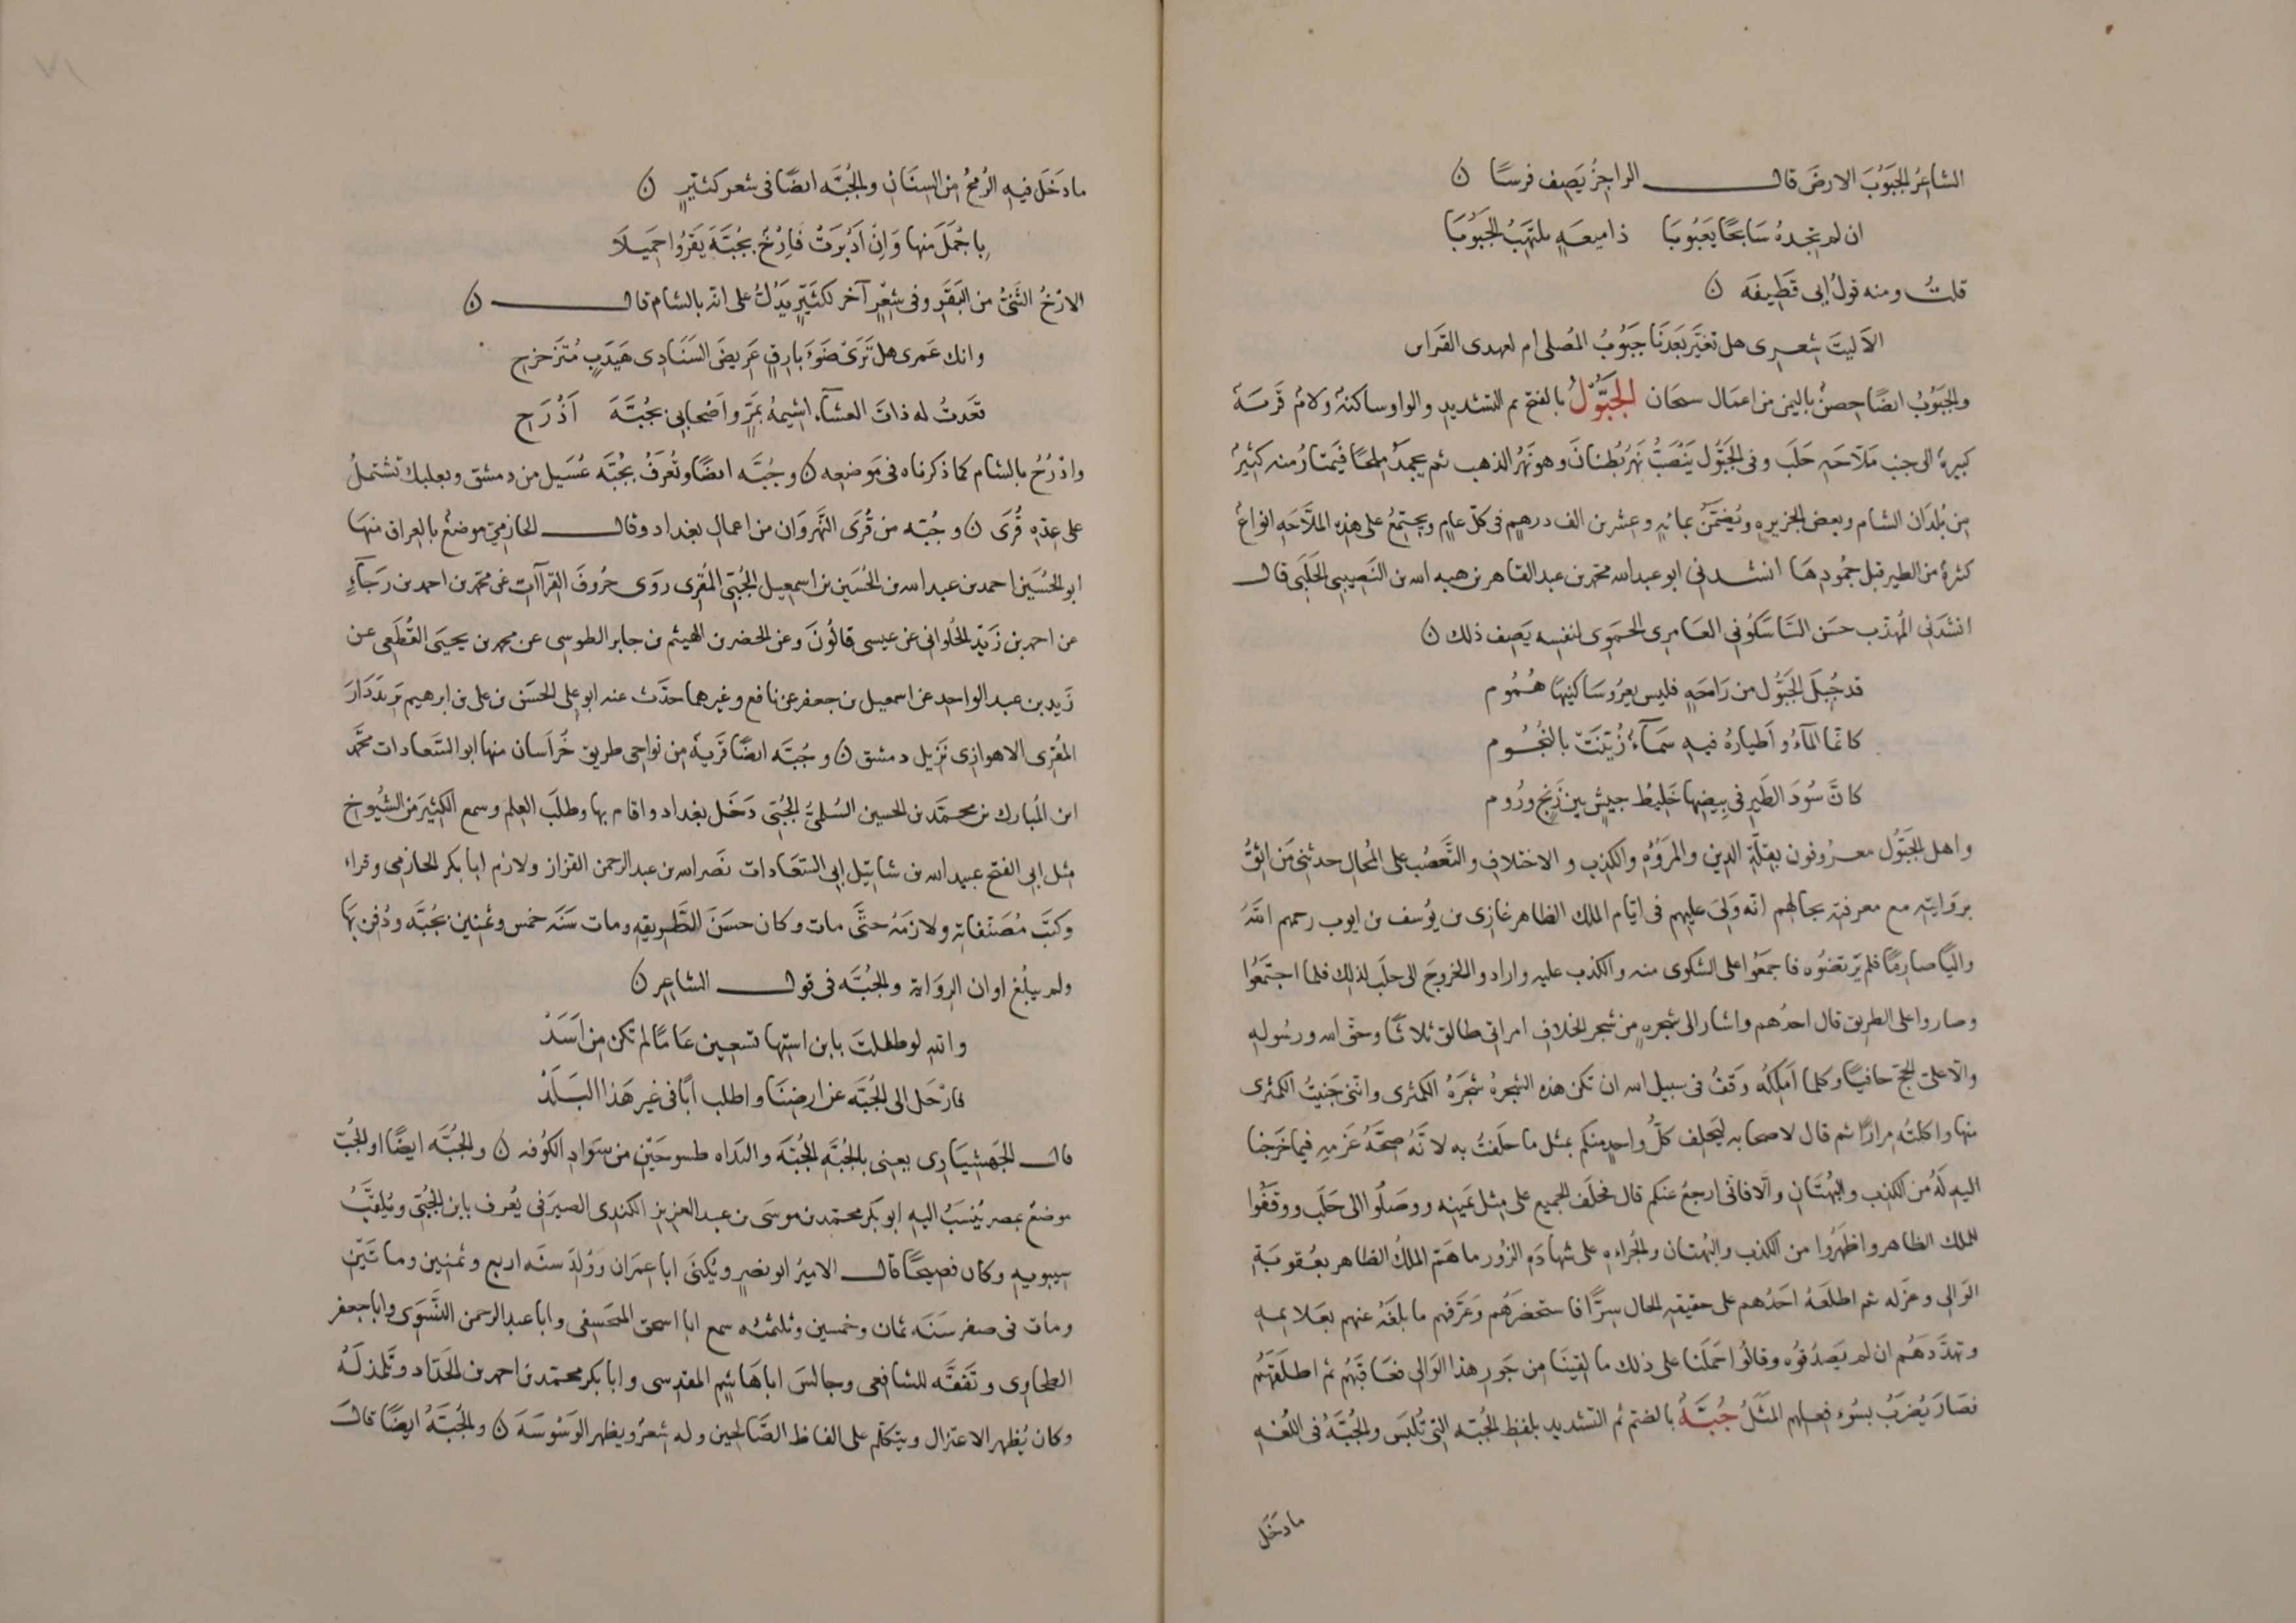 الشاعرُ الجَبُوبُ الارضَ قال الراجزُ يَصِف فرسًا ن
ان لم تجدهُ سَابحًا يَعبُوبَا ذا ميعَةٍ يلتهبُ الجَبُوبَا
قلتُ ومنه قولُ ابى قَطِيفَه ن
الاَ ليتَ شِعرى هل تغيَّر بَعدَنَا جَبُوبُ المُصلى ام لعهدى القَراين
والجَبُوبُ ايضًا حِصنٌ باليمن من اعمَال سنحَان الجَبُّولُ بالفتح ثم التشديد والواو ساكنة ولام قَرية
كبيرة الى جنب مَلاّحَه حَلَب وفى الجَبُّول يَنْصَبُّ نَهرُ بُطنانَ وهو نَهرُ الذهب ثم يجمدُ ملحًا فيَمتارُ منه كثيرٌ
مِن بُلدَان الشام وبعض الجزيره ويُضَمَّنُ بمائهِ وعشرين الف درهم فى كلّ عامٍ ويجتمعُ على هذه الملاَّحه انواعٌ
كثرة من الطير قبل جمُودِهَا انشدنى ابو عبد الله محمد بن عبد القاهر بن هبه الله بن النَصِيبى الحَلَبى قال
انشَدَنى المُهذّب حسَن السَاسَكُونى العَامِرى الحَمَوى لنفسِه يَصِف ذلك ن
قد جُبِلَ الجَبُّول من رَاحَةٍ فليس يعرُو سَاكنيهَا هُمُوم
كانّما المآءُ واَطيارهُ فيهِ سَمَآءٌ زُيّنَتْ بالنجُوم
كانَّ سُودَ الطَيرِ فى بيِضِها خَلِيطُ جيشٍ بين زَنجٍ ورُوم
واهل الجَبُّول معرُوفون بقِلّةِ الدين والمرَوّه والكذبِ والاختلافِ والتَّعَصُب على المُحال حدثنى مَن اثِقُ
بروَايتهِ مع معرفتهِ بحالهم انه وَلىَ عليهم فى ايّام الملك الظاهر غازى بن يوُسف بن ايوب رحمهم اللهُ
واليًا صارمًا فلم يَرتضُوه فاجمعَوُا على الشكوى منه والكذب عليه وارادوا الخروجَ الى حلَب لذلِك فلما اجتمَعُوا
وصاروا على الطريق قال احدُهم واشار الى شجره من شجر الخلاف امراتى طالق ثلاثًا وحق الله ورسُولهِ
والاّ علىّ الحجّ حافيًا وكلما اَملِكُه وَقفٌ فى سبيل الله ان تكن هذه الشجرةُ شجَرَةُ الكمّثرى واننى جَنيتُ الكمّثرى
منها واكلتُه مرارًا ثم قال لاصحابه ليَحلِف كلُّ واحِدٍ منكم بمثل ما حلَفتُ به لانَّهُ صِحّهُ عَزمهِ فيما خَرجنا
اليه لَهُ من الكذِب والبُهتَانِ والاّ فانى ارجعُ عنكم قال فحلَف الجميع على مِثل يمَينِه ووصَلُوا الى حَلَب ووقفُوا
للملك الظاهر واظهرُوا من الكذب والبُهتان والجُراءه على شهادَه الزُور ما همّ الملكُ الظاهر بعُقوبَةِ
الوَالى وعَزله ثم اطلعَهُ احَدُهم على حقيقه الحال سِرًّا فاستحضَرهُم وعَرّفهم ما بلغَهُ عنهم بعَلايمهِ
وتهدّدَهُم ان لم يَصدُقوُه وقالُوا حَملَنا على ذلك ما لقينَا مِن جَورِ هذا الوَالى فعَاقَبَهُم ثم اطلَقَهُم
فصَارَ يُضرَبُ بسُوءِ فعلهم المَثَلُ جُبَّةُ بالضمّ ثم التشديد بلفظِ الجُبّه التى تُلبَس والجُبَّةُ فى اللُغهِ
ما دخَل
ما دَخَل فيهِ الرُمحُ مِن السِنَانِ والجُبَّه ايضًا فى شعر كثيّرٍ ن
بِاَجْمَلَ منها وَاِن اَدْبَرَتْ فَاِرْخٌ بجُبَّةَ يَقرُوا حَمِيلاَ
الارْخُ الثَنىُّ من البَقَرِ وفى شِعْرٍ آخر لكثَيّرٍ يَدُلُّ على انه بالشام قال ن
وانك عَمرى هل تَرَى ضَوءَ بارقٍ عَرِيض السَنَا دى هَيدَبٍ مُتزَحزح
قعَدتُ له ذاتَ العشآءِ اشيمهُ بمَرٍّ واَصْحابى بجُبَّةَ اَذْرَحِ
واذرُحُ بالشام كما ذكرناه فى مَوضعِه ن وجُبَّه ايضًا وتُعرَفُ بجُبَّه عُسَيل من دمشق وبعلبك تشتملُ
على عِدّهِ قُرَى ن وجُبّه من قُرَى النَّهروَان من اعمالِ بغداد وقال الحازمىّ موضعٌ بالعِراق منهَا
ابو الحُسَين احمد بن عبد الله بن الحُسَين بن اسمعيل الجُبّى المُقرى روَى حرُوفَ القرآآت عَن محمد بن احمد بن رَجَآءٍ
عن احمد بن زَيد الحُلوانى عن عيسى قالُونَ وعن الخضر بن الهيثم بن جابر الطوسى عن محمد بن يحيىَ القُطَعى عن
زَيد بن عبد الواحد عن اسمعيل بن جعفر عن نافع وغيرهما حدّث عنه ابو على الحسَن بن على بن ابرهيم بن يَزدَدَادَ
المُقرِى الاهوازى نَزِيل دمشق ن وجُبَّه ايضًا قَريةٌ مِن نواحى طريق خُراَسان منها ابو السَعادات محمَّد
ابن المُبارك بن محمَّد بن الحسين السُلمىُّ الجُبّى دَخَل بغداد واقام بها وطلَبَ العِلمَ وسمع الكثيَر مَن الشيُوخ
مِثل ابى الفتح عبيد الله بن شاتيل ابى السَعَادات نَصر الله بن عبد الرحمن القزاز ولازم ابا بكر الحازمى وقراء
وكتَبَ مُصَنفاتهِ ولازمَهُ حتَّى مات وكان حسَنَ الطَّريقهِ ومات سَنَه خمس وثَمنين بجُبَّه ودُفن بهَا
ولم يبلُغ اوان الروَايهَ والجُبَّه فى قول الشاعِر ن
والله لو طفلتَ يا ابن استِها تسعين عَامًا لم تكن مِن اَسَدْ
فارْحَل الى الجُبَّه عن ارضِنَا واطلب ابًا فى غير هَذا البَلَدْ
قال الجَهشِيَارى يعنى بالجُبَّهِ الجُبَّهَ والبدَاه طسوجَين من سَوادِ الكوُفه ن والجُبَّه ايضًا او الجُبّ
موضعٌ بمصر يُنسَبُ اليه ابو بكر محمّد بن موسَى بن عبد العزيزِ الكندى الصيرَفى يُعرف بابن الجُبّى ويُلقَّبُ
سيبويهِ وكان فصيحًا قال الاميرُ ابو نصرٍ ويُكنىَ ابا عِمرَان ووُلِدَ سنَه اربع وثمنين ومائتَين
ومات فى صفر سَنَه ثمان وخمسين وثلثمئه سمع ابا اسحق المنجنيقى وابا عبد الرحمن النَّسَوى وابا جعفر
الطحاوى وتَفقَّه للشافعى وجالسَ ابا هَاشِم المقدِسى وابا بكر محمّد بن احمد بن الحَدّاد وتَلمذ لَهُ
وكان يُظهر الاعتزال ويتكلّم على الفاظِ الصَّالحين وله شِعرٌ ويظهر الوَسْوَسَةَ ن والجُبَّةُ ايضًا قالَ